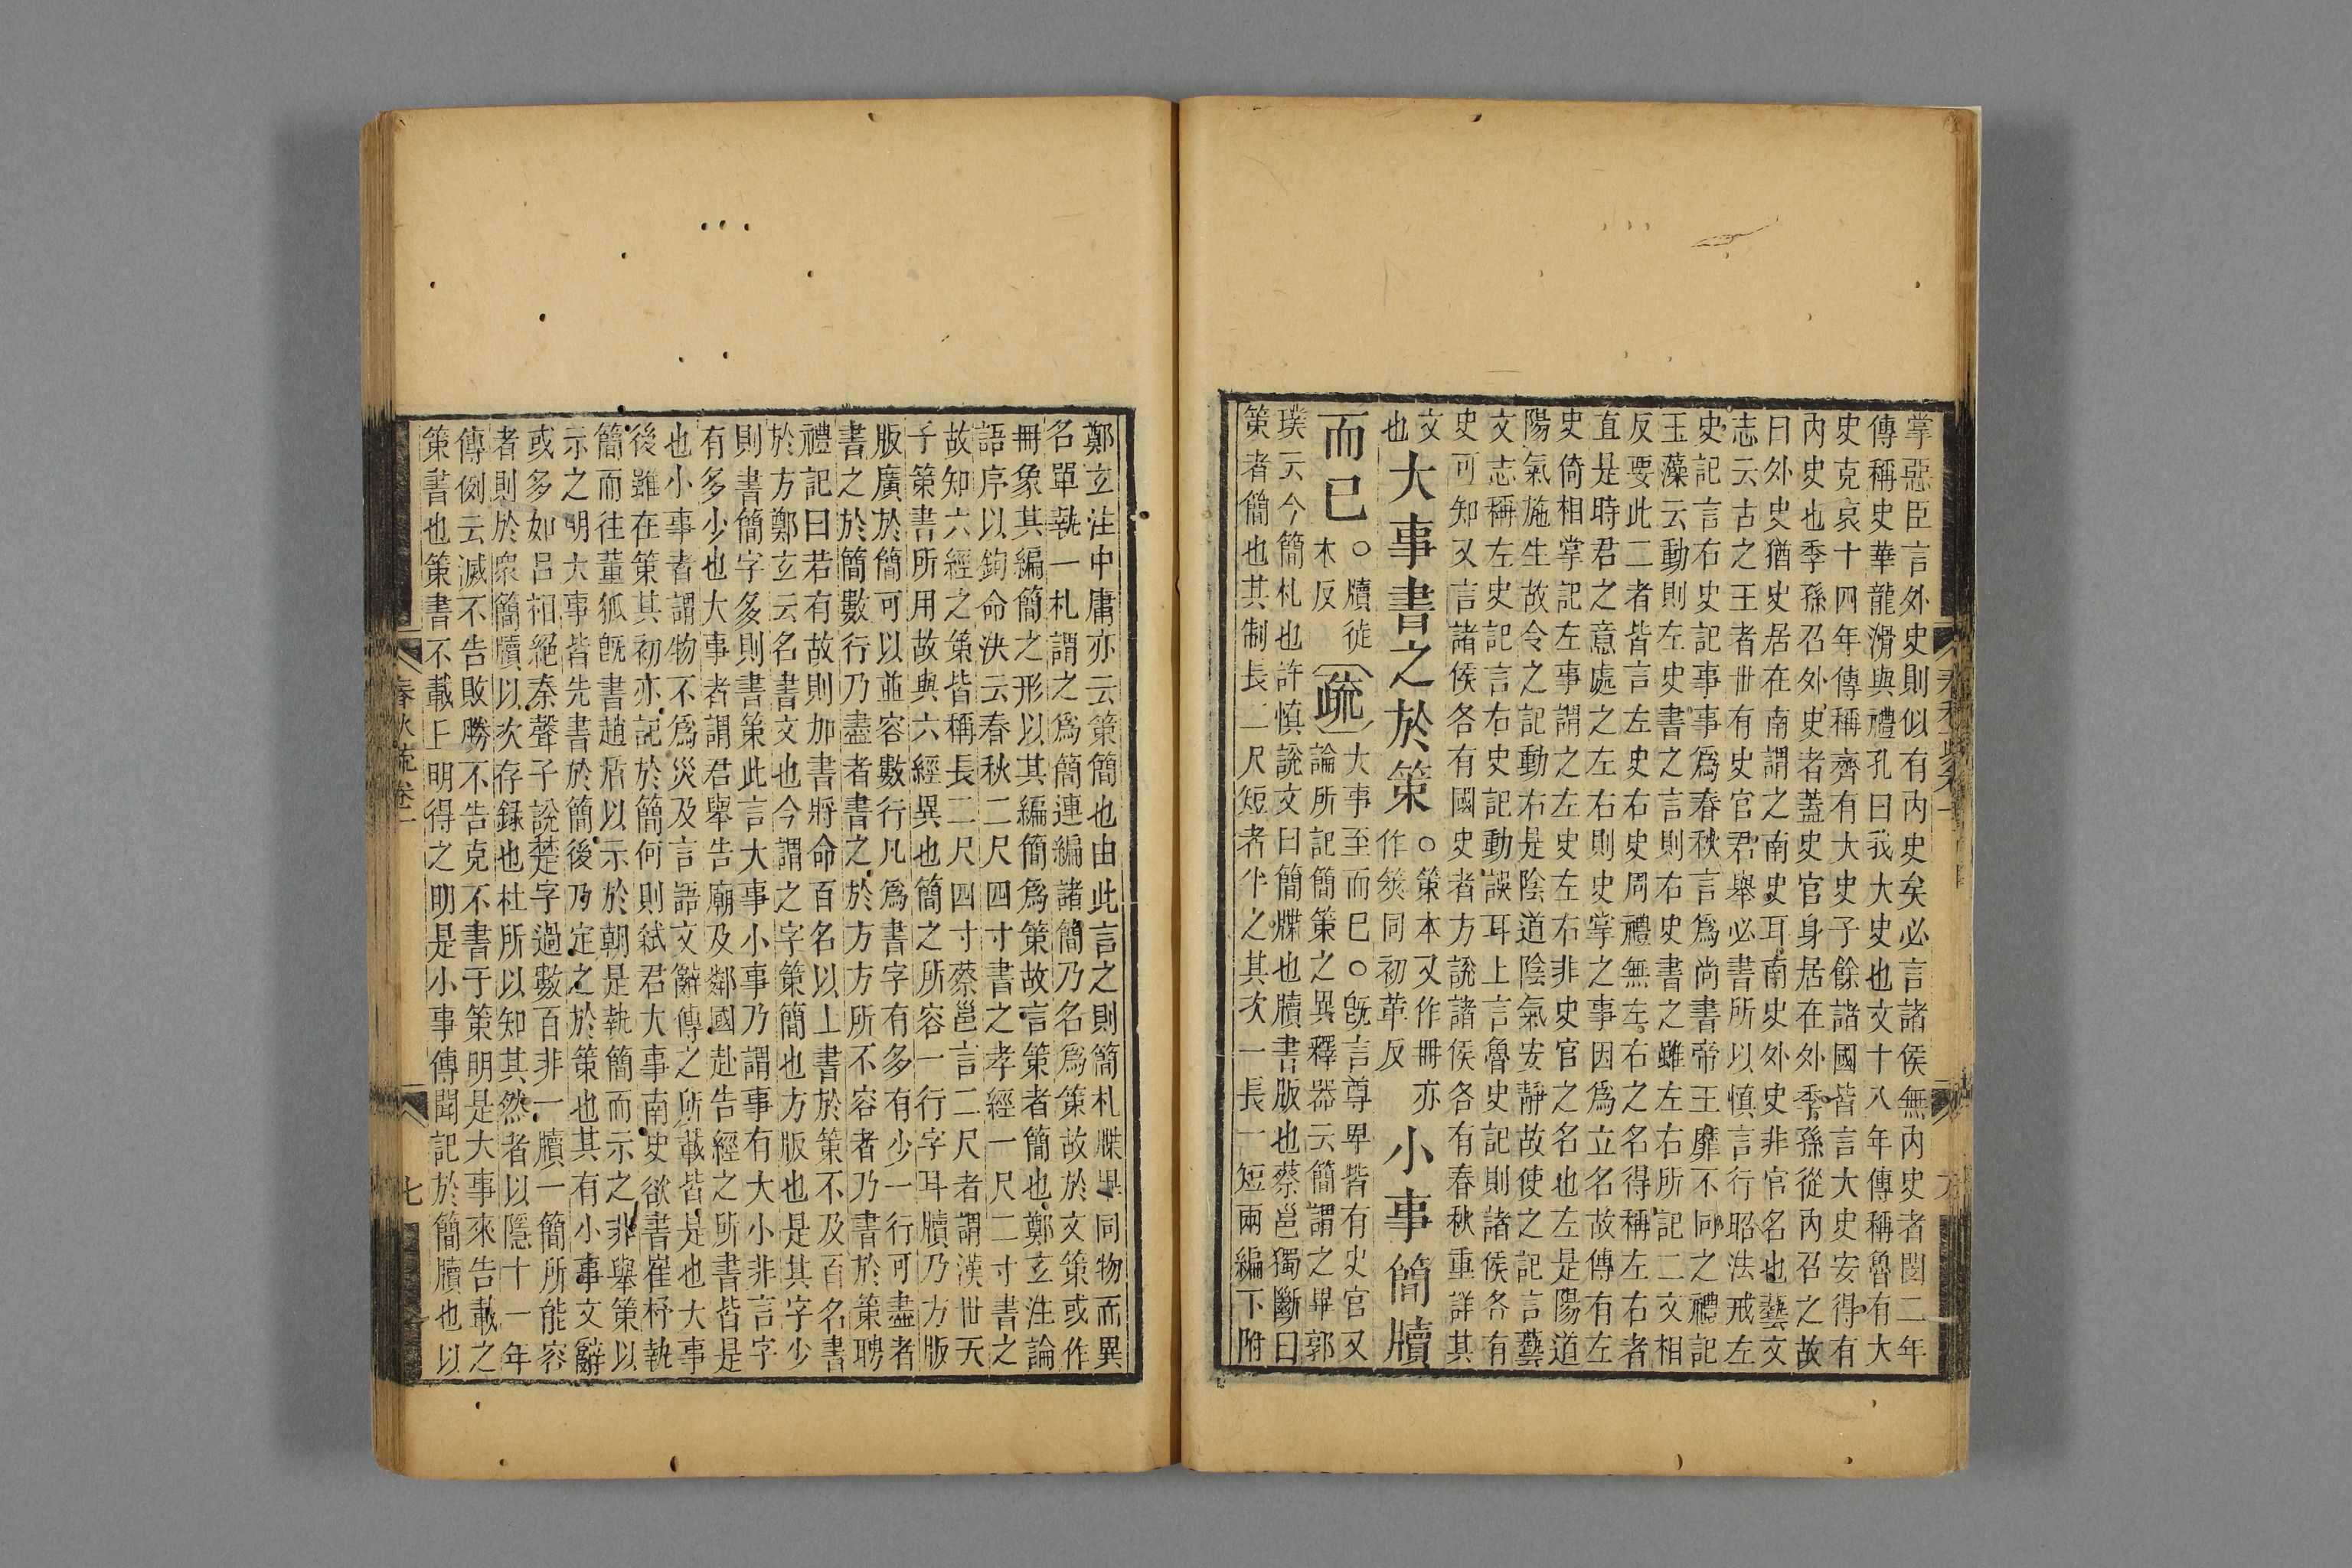 掌惡臣言外史則似有內史矣必言諸侯無內史者閔二年
傳稱史華龍滑與禮孔曰我大史也文十八年傳稱魯有大
史克哀十四年傳稱齊有大史子餘諸國皆言大史安得有
內史也季孫召外史者蓋史官身居在外季孫從內召之故
曰外史猶史居在南謂之南史耳南史外史非官名也藝文
志云古之王者世有史官君舉必書所以慎言行昭法戒左
史記言右史記事事爲春秋言爲尚書帝王靡不同之禮記
玉藻云動則左史書之言則右史書之雖左右所記二文相
反要此二者皆言左史右史周禮無左右之名得稱左右者
直是時君之意處之左右則史掌之事因爲立名故傳有左
史倚相掌記左事謂之左史左右非史官之名也左是陽道
陽氣施生故令之記動右是陰道陰氣安靜故使之記言藝
文志稱左史記言右史記動誤耳上言魯史記則諸侯各有
史可知又言諸侯各有國史者方說諸侯各有春秋重詳其
文
也大事書之於策○策本又作冊亦作筴同初革反小事簡牘
而已○牘徒木反疏大事至而已○旣言尊卑皆有史官又
論所記簡策之異釋器云簡謂之畢郭
璞云今簡札也許慎說文曰簡牒也牘書版也蔡邕獨斷曰
策者簡也其制長二尺短者半之其次一長一短兩編下附
鄭玄注中庸亦云策簡也由此言之則簡札牒畢同物而異
名單執一札謂之爲簡連編諸簡乃名爲策故於文策或作
冊象其編簡之形以其編簡爲策故言策者簡也鄭玄注論
語序以鉤命決云春秋二尺四寸書之孝經一尺二寸書之
故知六經之策皆稱長二尺四寸蔡邕言二尺者謂漢世天
子策書所用故與六經異也簡之所容一行字耳牘乃方版
版廣於簡可以並容數行凡爲書字有多有少一行可盡者
書之於簡數行乃盡者書之於方方所不容者乃書於策聘
禮記曰若有故則加書將命百名以上書於策不及百名書
於方鄭玄云名書文也今謂之字策簡也方版也是其字少
則書簡字多則書策此言大事小事乃謂事有大小非言字
有多少也大事者謂君舉告廟及鄰國赴告經之所書皆是
也小事者謂物不爲災及言語文辭傳之所載皆是也大事
後雖在策其初亦記於簡何則弒君大事南史欲書崔杼執
簡而往董狐旣書趙盾以示於朝是執簡而示之非舉策以
示之明大事皆先書於簡後乃定之於策也其有小事文辭
或多如呂相絕秦聲子說楚字過數百非一牘一簡所能容
者則於衆簡牘以次存録也杜所以知其然者以隱十一年
傳例云滅不告敗勝不告克不書于策明是大事來告載之
策書也策書不載丘明得之明是小事傳聞記於簡牘也以
春秋疏卷一
七